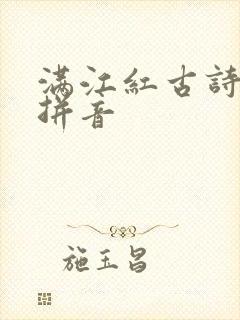 满江紅古詩
拼音
施玉昌